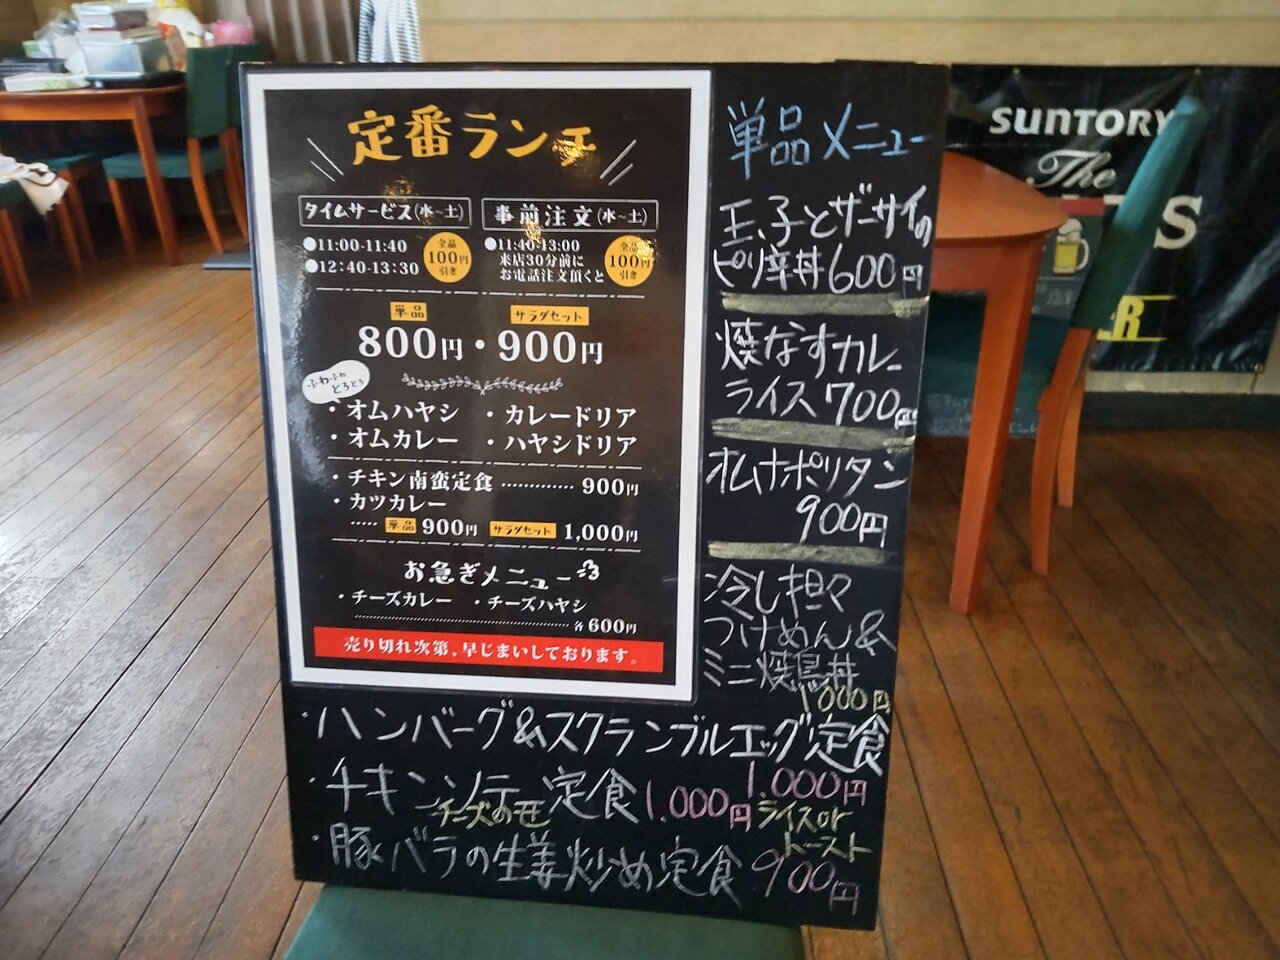 定番ランチ
タイムサービス(水~土)
●11:00-11:40
●12:40-13:30
全品
100円
引き
事前注文(水~土)
●11:40-13:00
来店30分前に
お電話注文頂くと
全品
100円
引き
単品 サラダセット
800円・900円
ふわふわ
とろとろ
・オムハヤシ ・カレードリア
・オムカレー ・ハヤシドリア
・チキン南蛮定食 ............. 900円
・カツカレー
..... 単品 900円 サラダセット 1,000円
お急ぎメニュー
・チーズカレー ・チーズハヤシ
各600円
売り切れ次第、早じまいしております。
単品メニュー
玉子とザーサイの
ピリ辛丼600円
焼なすカレー
ライス700円
オムナポリタン
900円
冷し担々
つけめん&
ミニ焼鳥丼
1000円
・ハンバーグ&スクランブルエッグ定食
1.000円
・チキンソテー定食1.000円
チーズのせ
ライスor
トースト
・豚バラの生姜炒め定食900円
SUNTORY
The